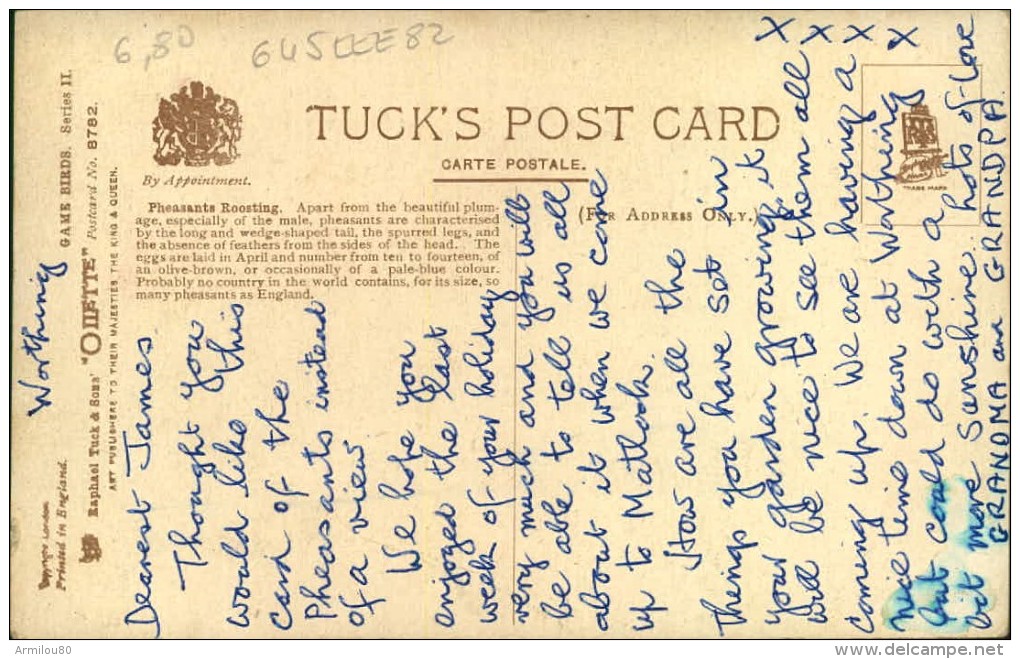 6,80
645EEE82
TUCK'S POST CARD
CARTE POSTALE.
By Appointment.
(For Address Only.)
TRADE MARK
Pheasants Roosting. Apart from the beautiful plum-
age, especially of the male, pheasants are characterised
by the long and wedge-shaped tail, the spurred legs, and
the absence of feathers from the sides of the head.. The
eggs are laid in April and number from ten to fourteen, of
an olive-brown, or occasionally of a pale-blue colour.
Probably no country in the world contains, for its size, so
many pheasants as England.
Copyright London
Printed in England.
GAME BIRDS. Series II.
Raphael Tuck & Sons' "OILETTE" Postcard No. 8782.
ART PUBLISHERS TO THEIR MAJESTIES THE KING & QUEEN.
Worthing
Dearest James
Thought you
would like this
card of the
Pheasants instead
of a view
We hope you
enjoyed the last
week of your holiday
very much and you will
be able to tell us all
about it when we come
up to Matlock.
How are all the
things you have set in
your garden growing, it
will be nice to see them all
coming up. We are having a
nice time down at Worthing
but could do with a
bit more sunshine. hots of love
GRANDMA and GRANDPA.
X X X X
Armilou80
delcampe.net